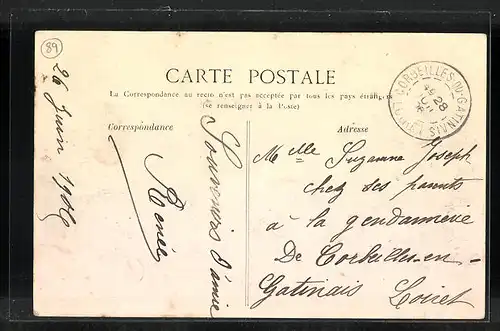 89
CARTE POSTALE
La Correspondance au recto n'est pas acceptée par tous les pays étrangers
(se renseigner à la Poste)
Correspondance
Adresse
26 Juin 1906
Souvenirs d'amie
Renée
Melle Suzanne Joseph
chez ses parents
à la gendarmerie
De Corbeilles-en-
Gatinais Loiret
CORBEILLES-DU-GATINAIS (LOIRET)
28